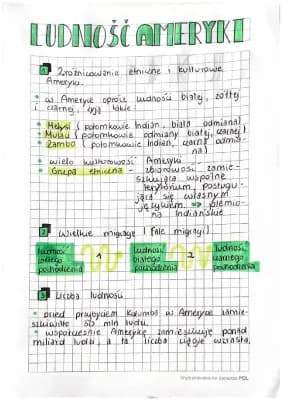 LUDNOŚĆ AMERYKI
1 Zróżnicowanie etniczne i kulturowe
Ameryki.
w Ameryce oprócz ludności białej, żółtej
i czarnej, żyją także
Metysi (potomkowie Indian, biała odmiana)
Mulaci (potomkowie odmiany białej, czarnej)
Zambo (potomkowie Indian, czarna odmia-
na)
wielo kulturowość Ameryki
Grupa etniczna - zbiorowość zamie-
szkująca wspólne
terytorium, posługu-
jąca się własnym
językiem. => plemio-
na Indiańskie
2 Wielkie migracje (fale migracji)
ludność
żółtego
pochodzenia
1
ludność
białego
pochodzenia
2
ludność
czarnego
pochodzenia
3 Liczba ludności
przed przybyciem Kolumba w Ameryce zamie-
szkiwało 50 mln ludzi.
współcześnie Amerykę zamieszkuje ponad
miliard ludzi, a ta liczba ciągle wzrasta.
Wydrukowano na papierze POL